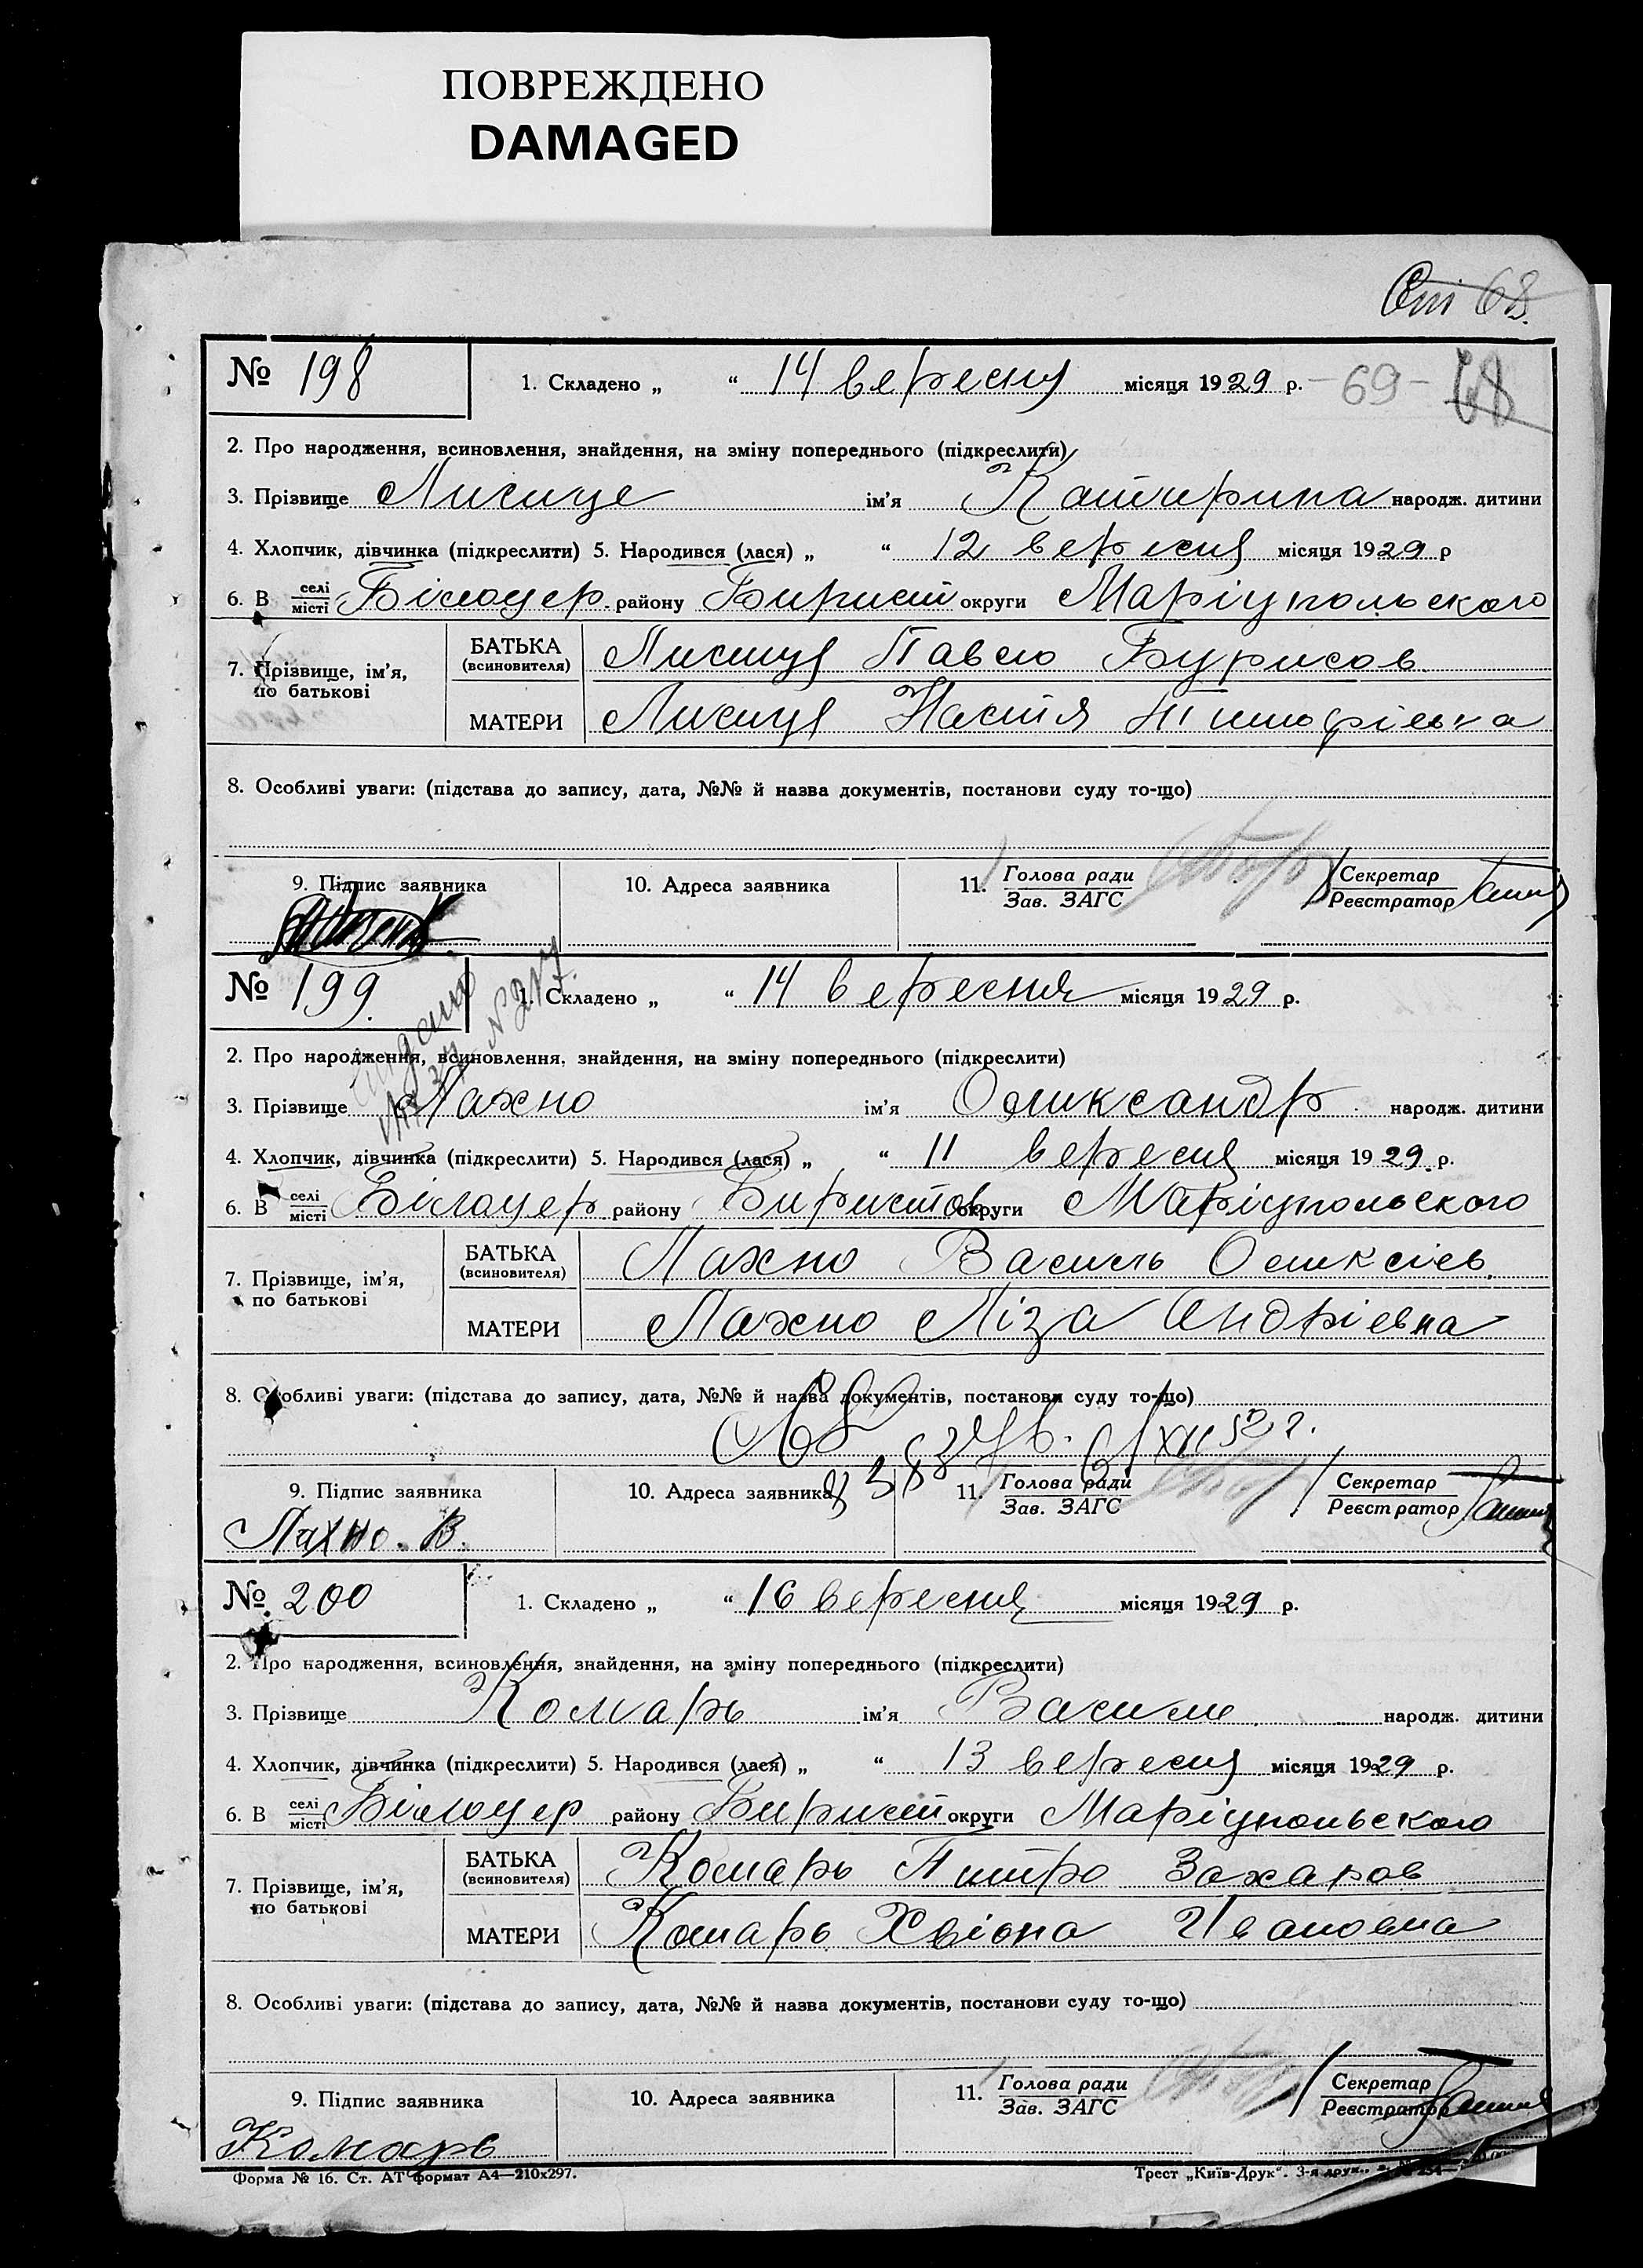 ПОВРЕЖДЕНО
DAMAGED
68
№ 198 1. Складено „ “ 14 вересня місяця 1929 р. -69-
2. Про народження, всиновлення, знайдення, на зміну попереднього (підкреслити)
3. Прізвище Лисице ім'я Катирина народж. дитини
4. Хлопчик, дівчинка (підкреслити) 5. Народився (лася) „ “ 12 вересня місяця 1929 р
6. В селі/місті Білоцер. району Бирист округи Маріупольського
7. Прізвище, ім'я, по батькові
БАТЬКА (всиновителя) Лисиця Павло Бурисов
МАТЕРИ Лисиця Настя
8. Особливі уваги: (підстава до запису, дата, №№ й назва документів, постанови суду то-що)
9. Підпис заявника 10. Адреса заявника 11. Голова ради/Зав. ЗАГС Секретар/Реєстратор
№ 199. 1. Складено „ “ 14 вересня місяця 1929 р.
2. Про народження, всиновлення, знайдення, на зміну попереднього (підкреслити)
3. Прізвище Лахно ім'я Олександр народж. дитини
4. Хлопчик, дівчинка (підкреслити) 5. Народився (лася) „ “ 11 вересня місяця 1929 р.
6. В селі/місті Білоцер району Биристов округи Маріупольського
7. Прізвище, ім'я, по батькові
БАТЬКА (всиновителя) Лахно Василь Оликсієв
МАТЕРИ Лахно Ліза Андрієвна
8. Особливі уваги: (підстава до запису, дата, №№ й назва документів, постанови суду то-що)
9. Підпис заявника 10. Адреса заявника 11. Голова ради/Зав. ЗАГС Секретар/Реєстратор
Лахно. В.
№ 200 1. Складено „ “ 16 вересня місяця 1929 р.
2. Про народження, всиновлення, знайдення, на зміну попереднього (підкреслити)
3. Прізвище Комарь ім'я Василь народж. дитини
4. Хлопчик, дівчинка (підкреслити) 5. Народився (лася) „ “ 13 вересня місяця 1929 р.
6. В селі/місті Білоцер району Бирист округи Маріупольського
7. Прізвище, ім'я, по батькові
БАТЬКА (всиновителя) Комарь Питро Захаров
МАТЕРИ Комарь Ивановна
8. Особливі уваги: (підстава до запису, дата, №№ й назва документів, постанови суду то-що)
9. Підпис заявника 10. Адреса заявника 11. Голова ради/Зав. ЗАГС Секретар/Реєстратор
Комарь
Форма № 16. Ст. АТ формат А4—210х297. Трест „Київ-Друк“. 3-я друк.